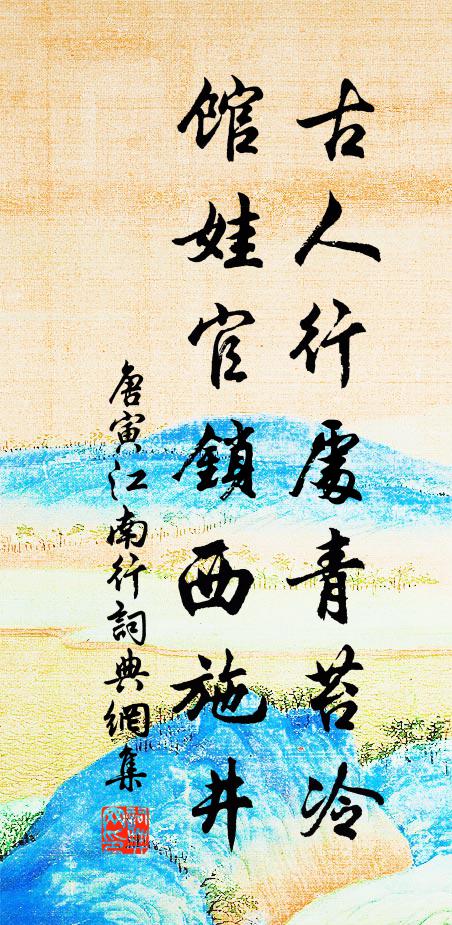 古人行處青苔冷
館娃宫鎖西施井
唐寅江南行詞典網集